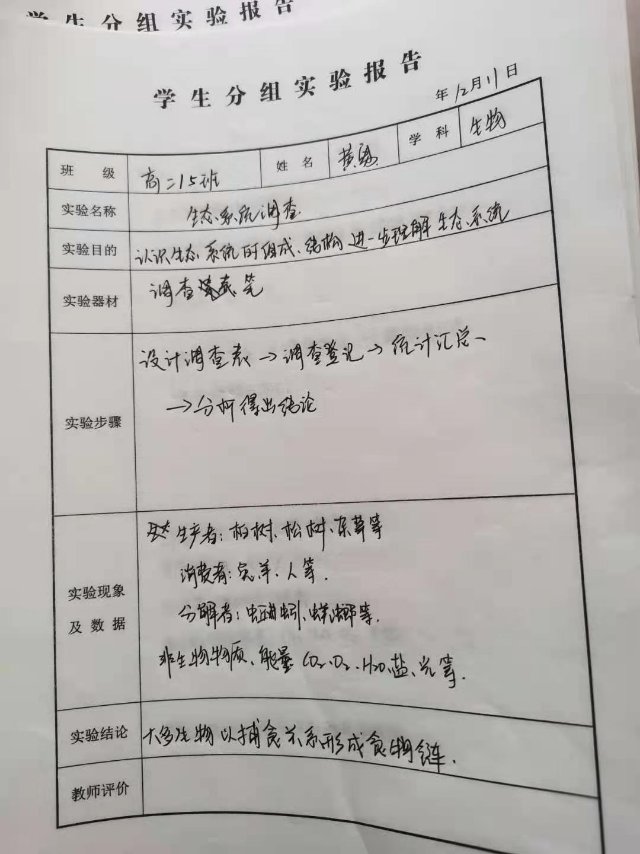 学生分组实验报告
学生分组实验报告
年12月11日
班级 高二15班 姓名 学科 生物
实验名称 生态系统调查
实验目的 认识生态系统的组成、结构进一步理解生态系统
实验器材 调查表笔
实验步骤
设计调查表→调查登记→统计汇总、
→分析得出结论
实验现象及数据
生产者:柏树、松树、杂草等
消费者:兔、羊、人等.
分解者:蚯蚓、蜣螂等.
非生物物质、能量 CO2、O2、H2O、盐、光等.
实验结论 大多生物以捕食关系形成食物链.
教师评价